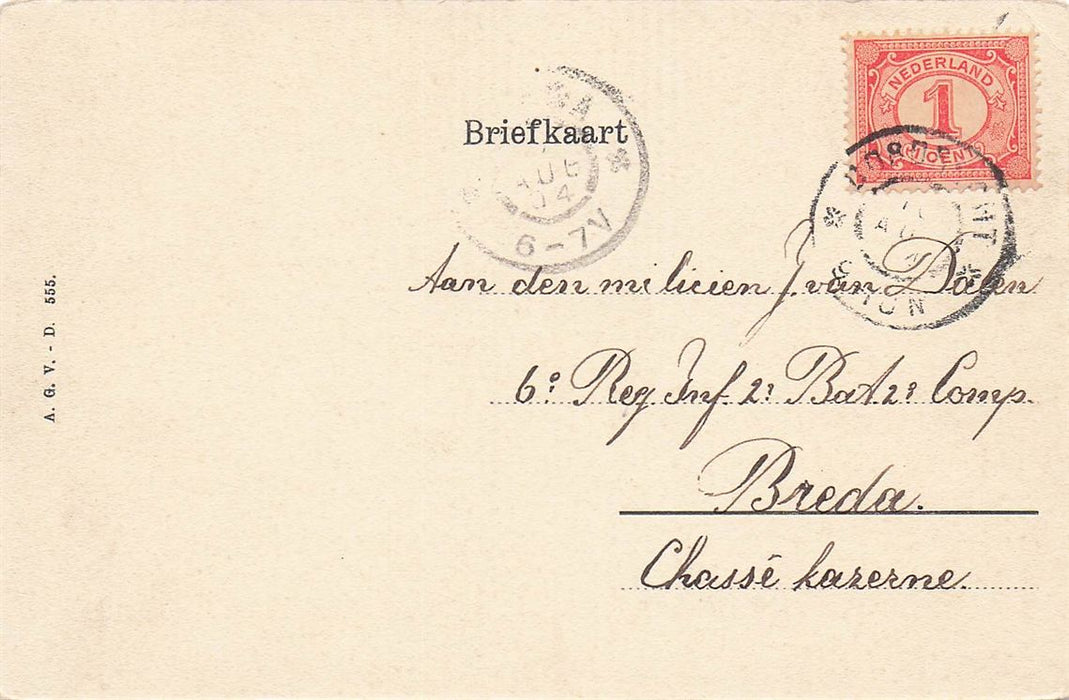 NEDERLAND
1
CENT
Briefkaart
AUG
04
6-7V
Aan den milicien J. van Dalen
6e Reg Inf 2e Bat 2e Comp.
Breda.
Chassé kazerne.
A. G. V. - D. 555.